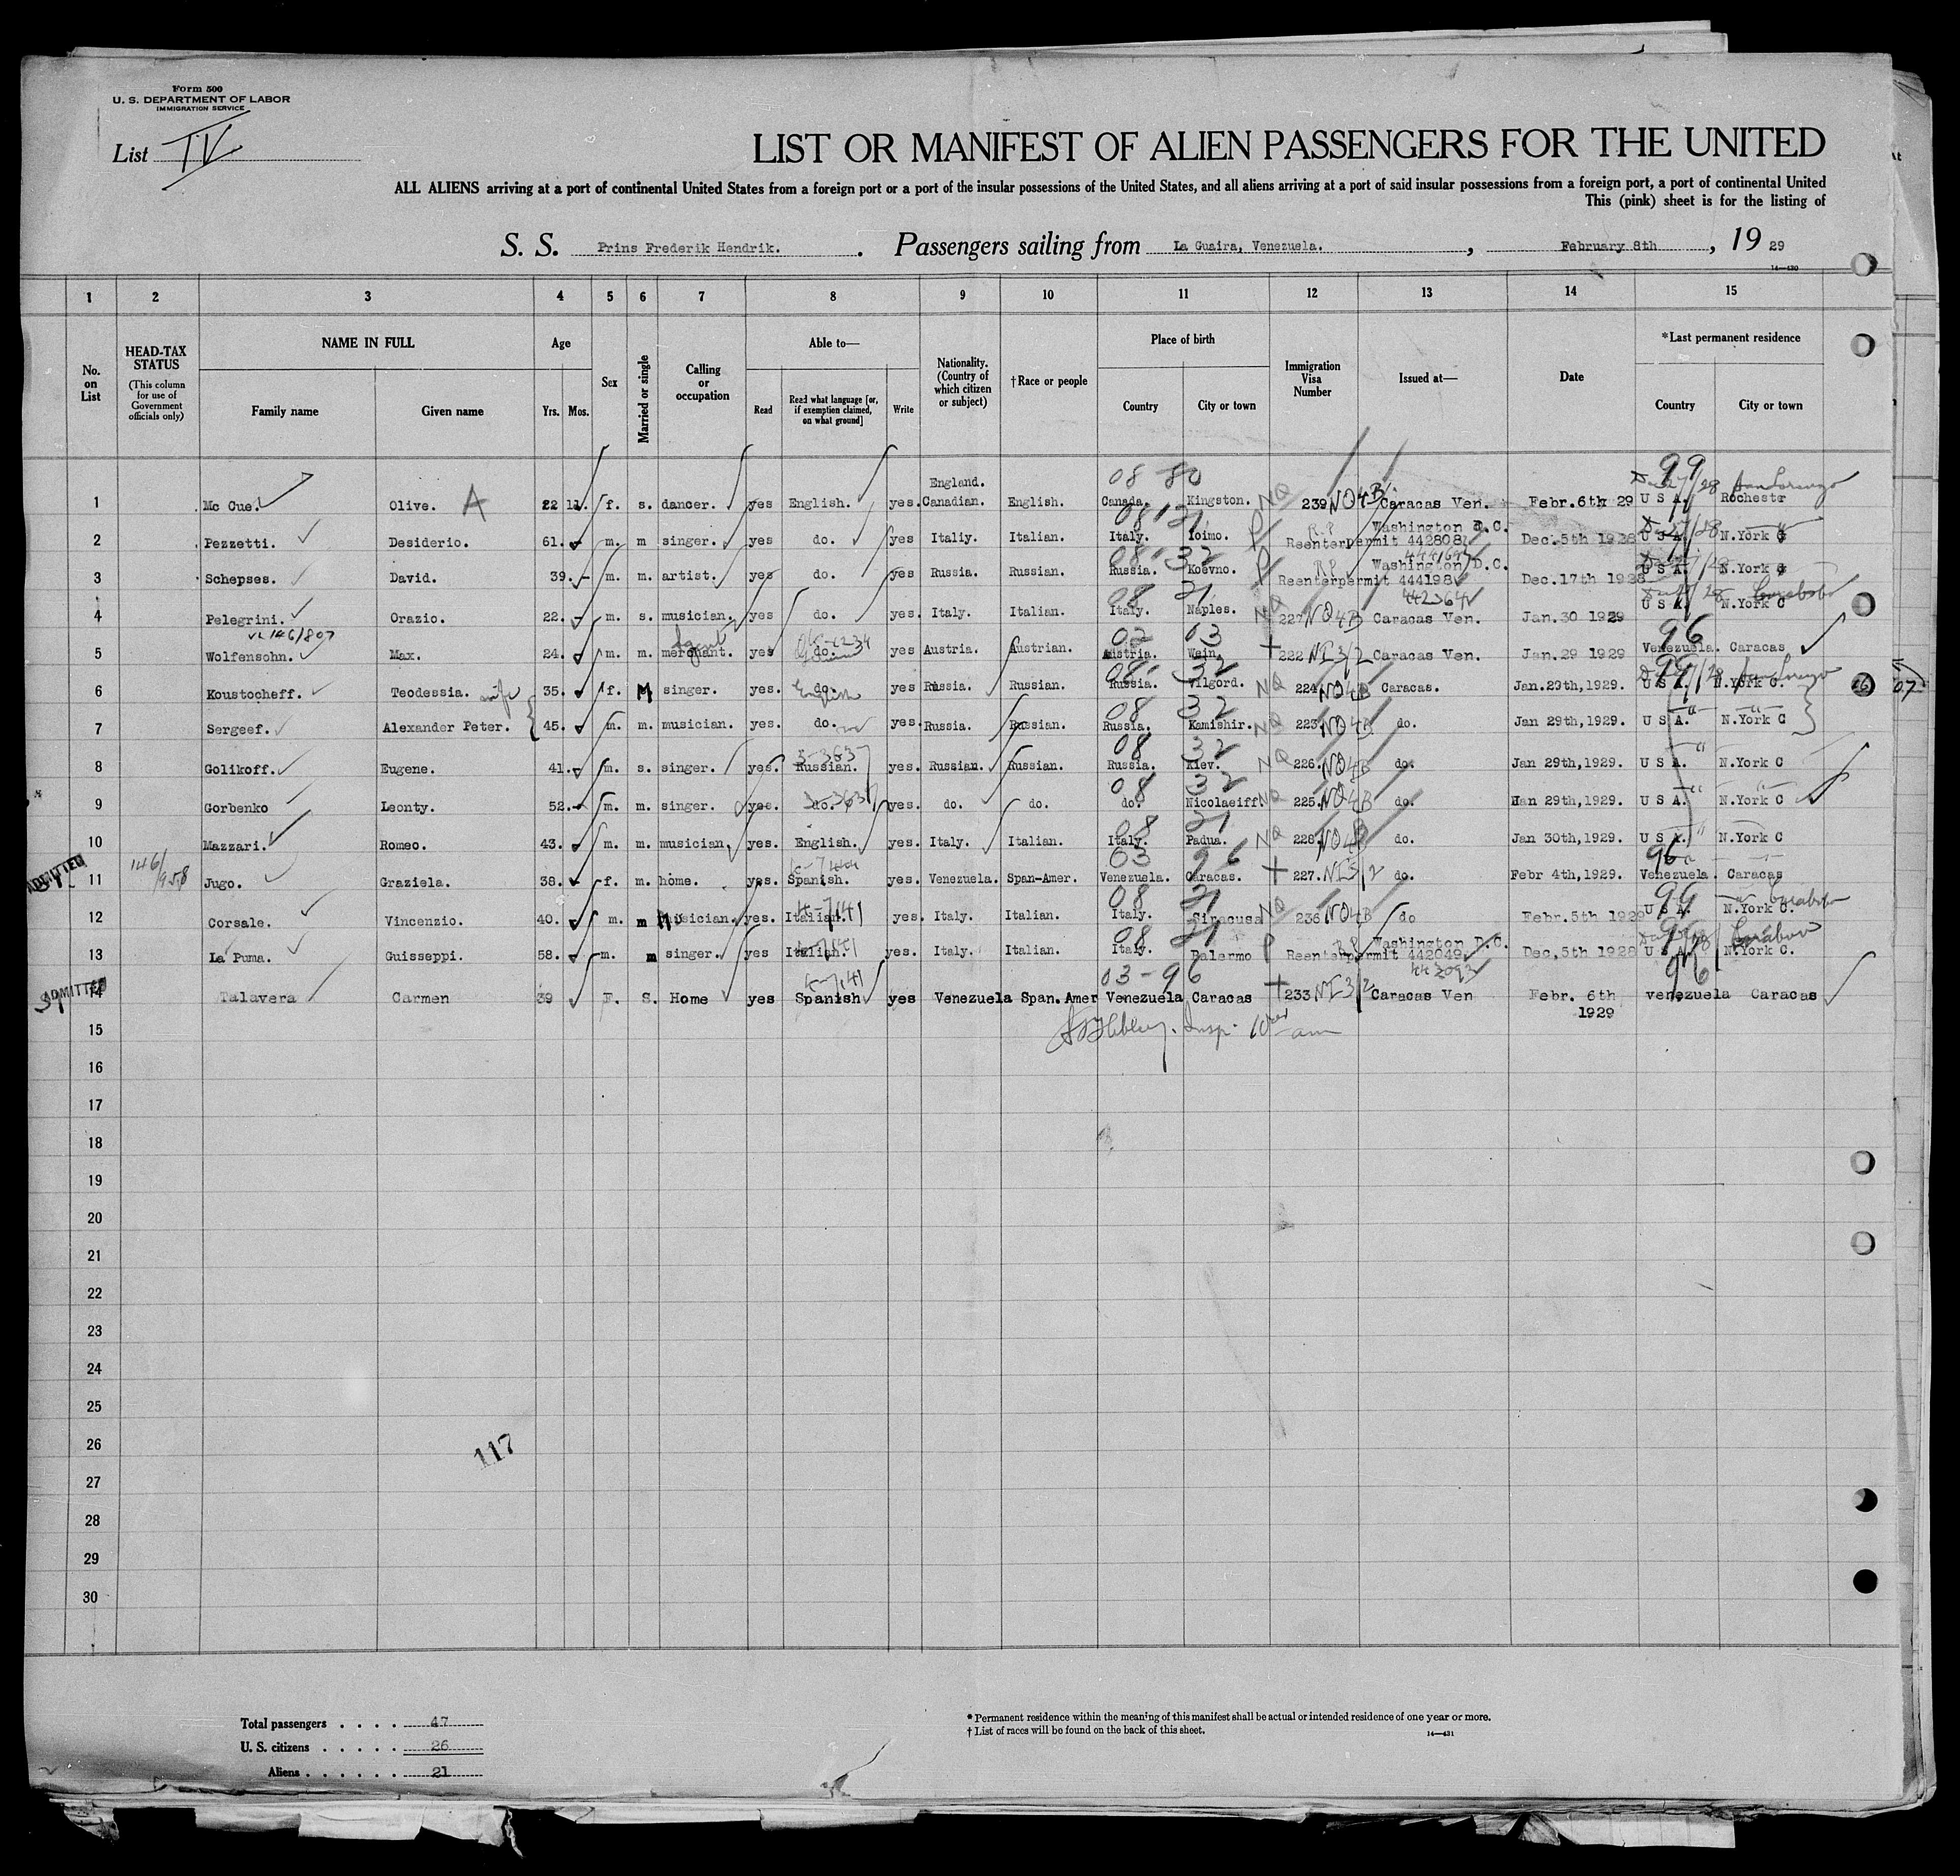 Form 500
U. S. DEPARTMENT OF LABOR
IMMIGRATION SERVICE
List IV
LIST OR MANIFEST OF ALIEN PASSENGERS FOR THE UNITED
ALL ALIENS arriving at a port of continental United States from a foreign port or a port of the insular possessions of the United States, and all aliens arriving at a port of said insular possessions from a foreign port, a port of continental United
This (pink) sheet is for the listing of
S. S. Prins Frederik Hendrik. Passengers sailing from La Guaira, Venezuela. , February 8th , 19 29
14—430
1 2 3 4 5 6 7 8 9 10 11 12 13 14 15
No. on List
HEAD-TAX STATUS (This column for use of Government officials only)
NAME IN FULL
Family name Given name
Age Yrs. Mos.
Sex
Married or single
Calling or occupation
Able to—
Read Read what language [or, if exemption claimed, on what ground] Write
Nationality. (Country of which citizen or subject)
†Race or people
Place of birth
Country City or town
Immigration Visa Number
Issued at—
Date
*Last permanent residence
Country City or town
08 80 99
1 Mc Cue. Olive. A 22 11. f. s. dancer. yes English. yes. England. Canadian. English. Canada. Kingston. NQ 239 NQ4B Caracas Ven. Febr. 6th 29 U S A. Rochestr
08 21
2 Pezzetti. Desiderio. 61. m. m singer. yes do. yes Italiy. Italian. Italy. Yoimo. P Reenterpermit 442808 Washington D.C. Dec. 5th 1928 U S A. N.York
08 32 444169
3 Schepses. David. 39. - m. m. artist. yes do. yes Russia. Russian. Russia. Koevno. P Reenterpermit 444198 Washington D.C. Dec. 17th 1928 U S A. N.York
08 21 442364
4 Pelegrini. Orazio. 22. - m. s. musician. yes do. yes. Italy. Italian. Italy. Naples. NQ 227 NQ4B Caracas Ven. Jan. 30 1929 U S A. N.York C
146/807 Agent 02 03 96
5 Wolfensohn. Max. 24. m. m. merchant. yes do. yes Austria. Austrian. Austria. Wein. 222 NI3/2 Caracas Ven. Jan. 29 1929 Venezuela. Caracas
08 32
6 Koustocheff. Teodessia. wife 35. f. M singer. yes. do. English yes Russia. Russian. Russia. Vilgord. NQ 224 NQ4B Caracas. Jan. 29th, 1929. U S A. N.York C.
08 32
7 Sergeef. Alexander Peter. 45. m. m. musician. yes. do. yes. Russia. Russian. Russia. Kamishir. NQ 223. NQ4B do. Jan 29th, 1929. U S A. N.York C
08 32
8 Golikoff. Eugene. 41. m. s. singer. yes. Russian. yes. Russian. Russian. Russia. Kiev. NQ 226. NQ4B do. Jan 29th, 1929. U S A. N.York C
08 32
9 Gorbenko Leonty. 52. m. m. singer. yes. do. yes. do. do. do. Nicolaeiff. NQ 225. NQ4B do. Han 29th, 1929. U S A. N.York C
08 21
10 Mazzari. Romeo. 43. m. m. musician. yes. English. yes. Italy. Italian. Italy. Padua. NQ 228. NQ4B do. Jan 30th, 1929. U S A. N.York C
ADMITTED 146/958 03 96 96
11 Jugo. Graziela. 38. f. m. home. yes. Spanish. yes. Venezuela. Span-Amer. Venezuela. Caracas. 227. NI3/2 do. Febr 4th, 1929. Venezuela. Caracas
08 21 99
12 Corsale. Vincenzio. 40. m. m Musician. yes. Italian. yes. Italy. Italian. Italy. Siracusa NQ 236 NQ4B do Febr. 5th 1929 U S A. N.York C.
08 21
13 La Puma. Guisseppi. 58. m. m singer. yes Italian. yes. Italy. Italian. Italy. Palermo P Reenterpermit 442049 Washington D.C. Dec. 5th 1928 U S A. N.York C.
ADMITTED 03-96 442093 96
14 Talavera Carmen 39 F. S. Home yes Spanish yes Venezuela Span. Amer Venezuela Caracas 233 NI3/2 Caracas Ven Febr. 6th 1929 venezuela Caracas
15
16
17
18
19
20
21
22
23
24
25
26
117
27
28
29
30
Total passengers . . . . 47
U. S. citizens . . . . . 26
Aliens . . . . . . 21
* Permanent residence within the meaning of this manifest shall be actual or intended residence of one year or more.
† List of races will be found on the back of this sheet.
14—431